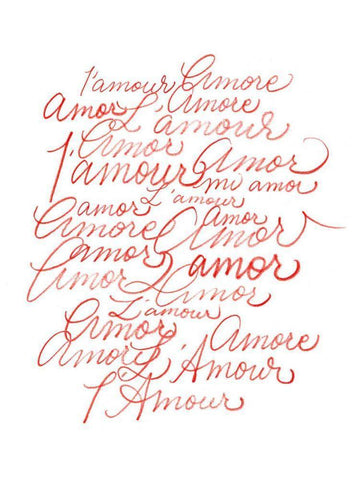 l'amour Amore
Amor L'Amore
L'amour
Amor
l'amour Amor
L'amour mi amor
amor Amor
Amore Amor
amor amor
Amor Amor
L'amour
Amor Amore
Amor L'Amour
l'Amour